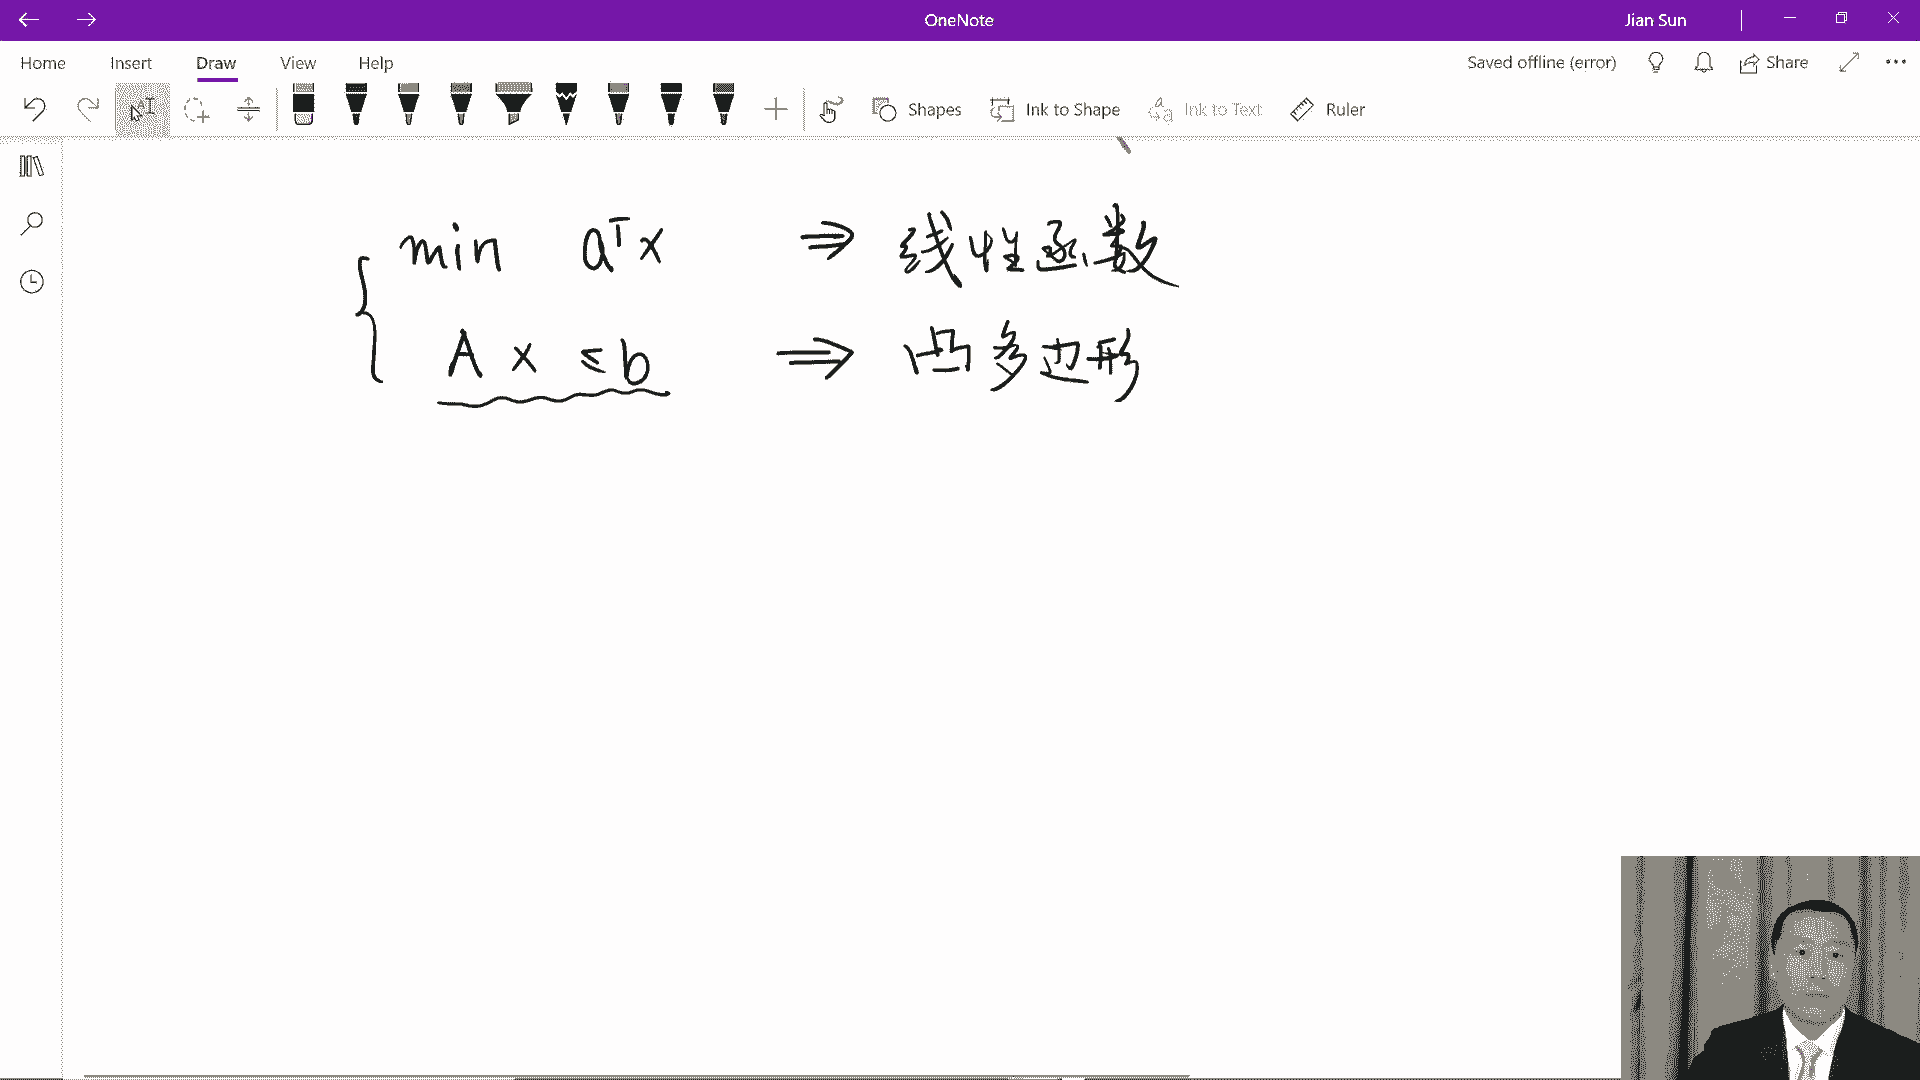 OneNote
Jian Sun
Home Insert Draw View Help
Saved offline (error)
Share
Shapes
Ink to Shape
Ink to Text
Ruler
min aᵀx ⇒ 线性函数
Ax ≤ b ⇒ 凸多边形